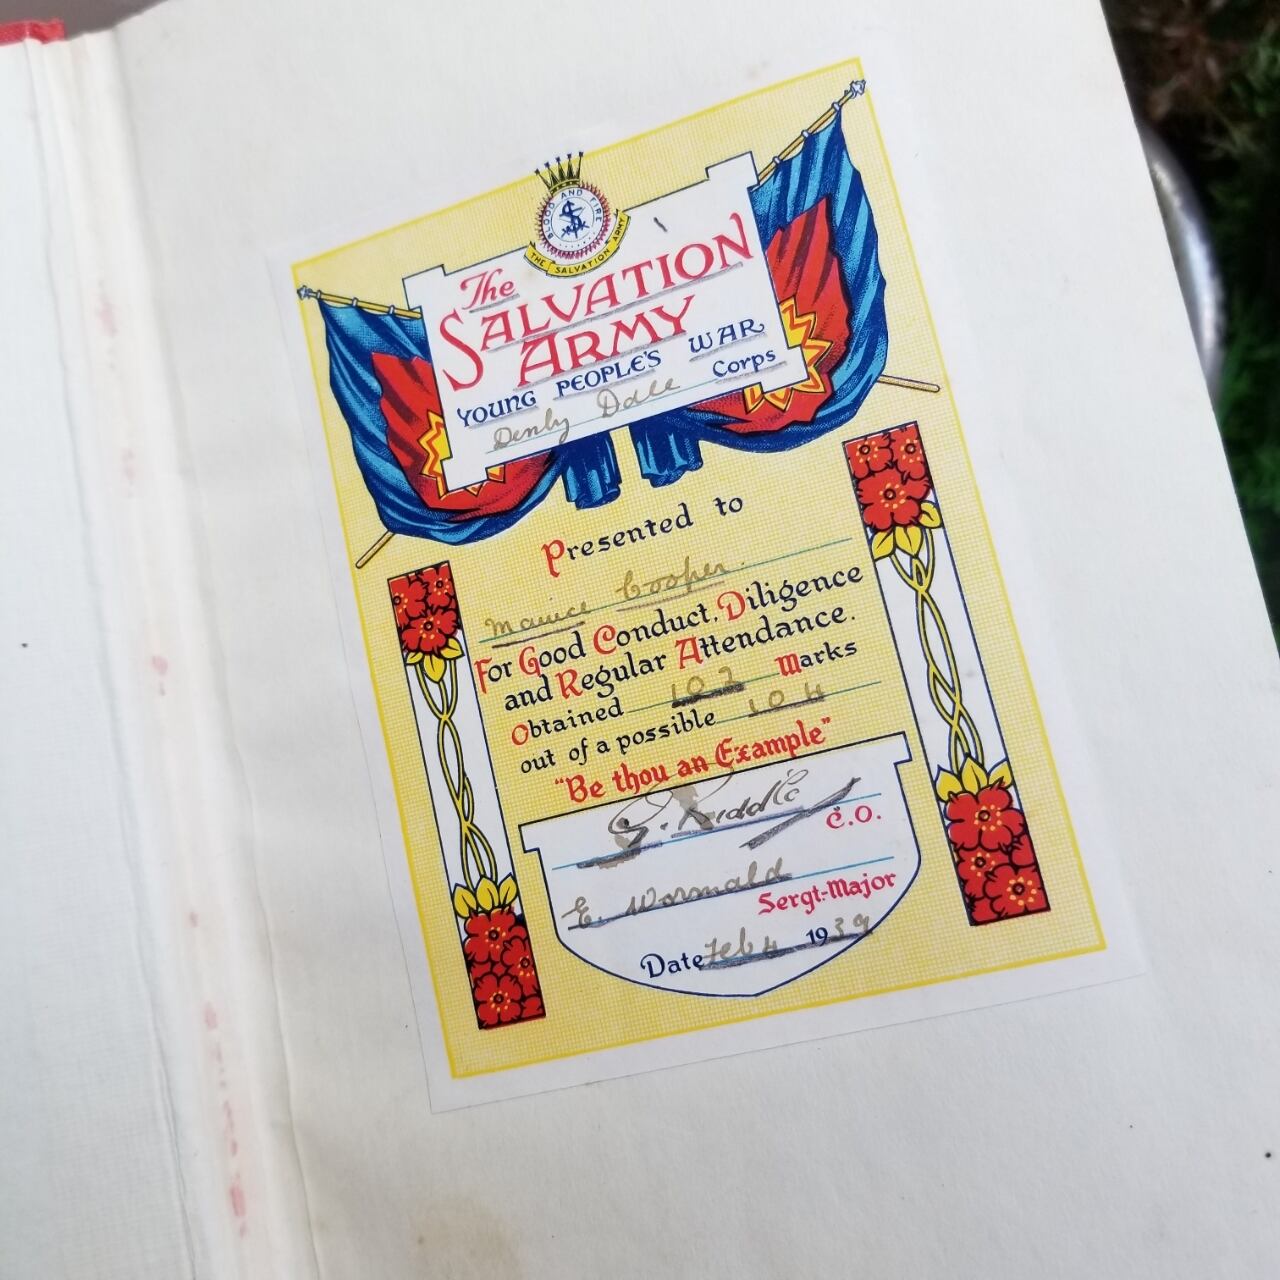 BLOOD AND FIRE
THE SALVATION ARMY
The
SALVATION
ARMY
YOUNG PEOPLE'S WAR
Denby Dale Corps
Presented to
Maurice Cooper.
For Good Conduct, Diligence
and Regular Attendance.
Obtained 102 Marks
out of a possible 104
"Be thou an Example"
G. Riddle C.O.
E. Wormald Sergt.-Major
Date Feb 4 1939